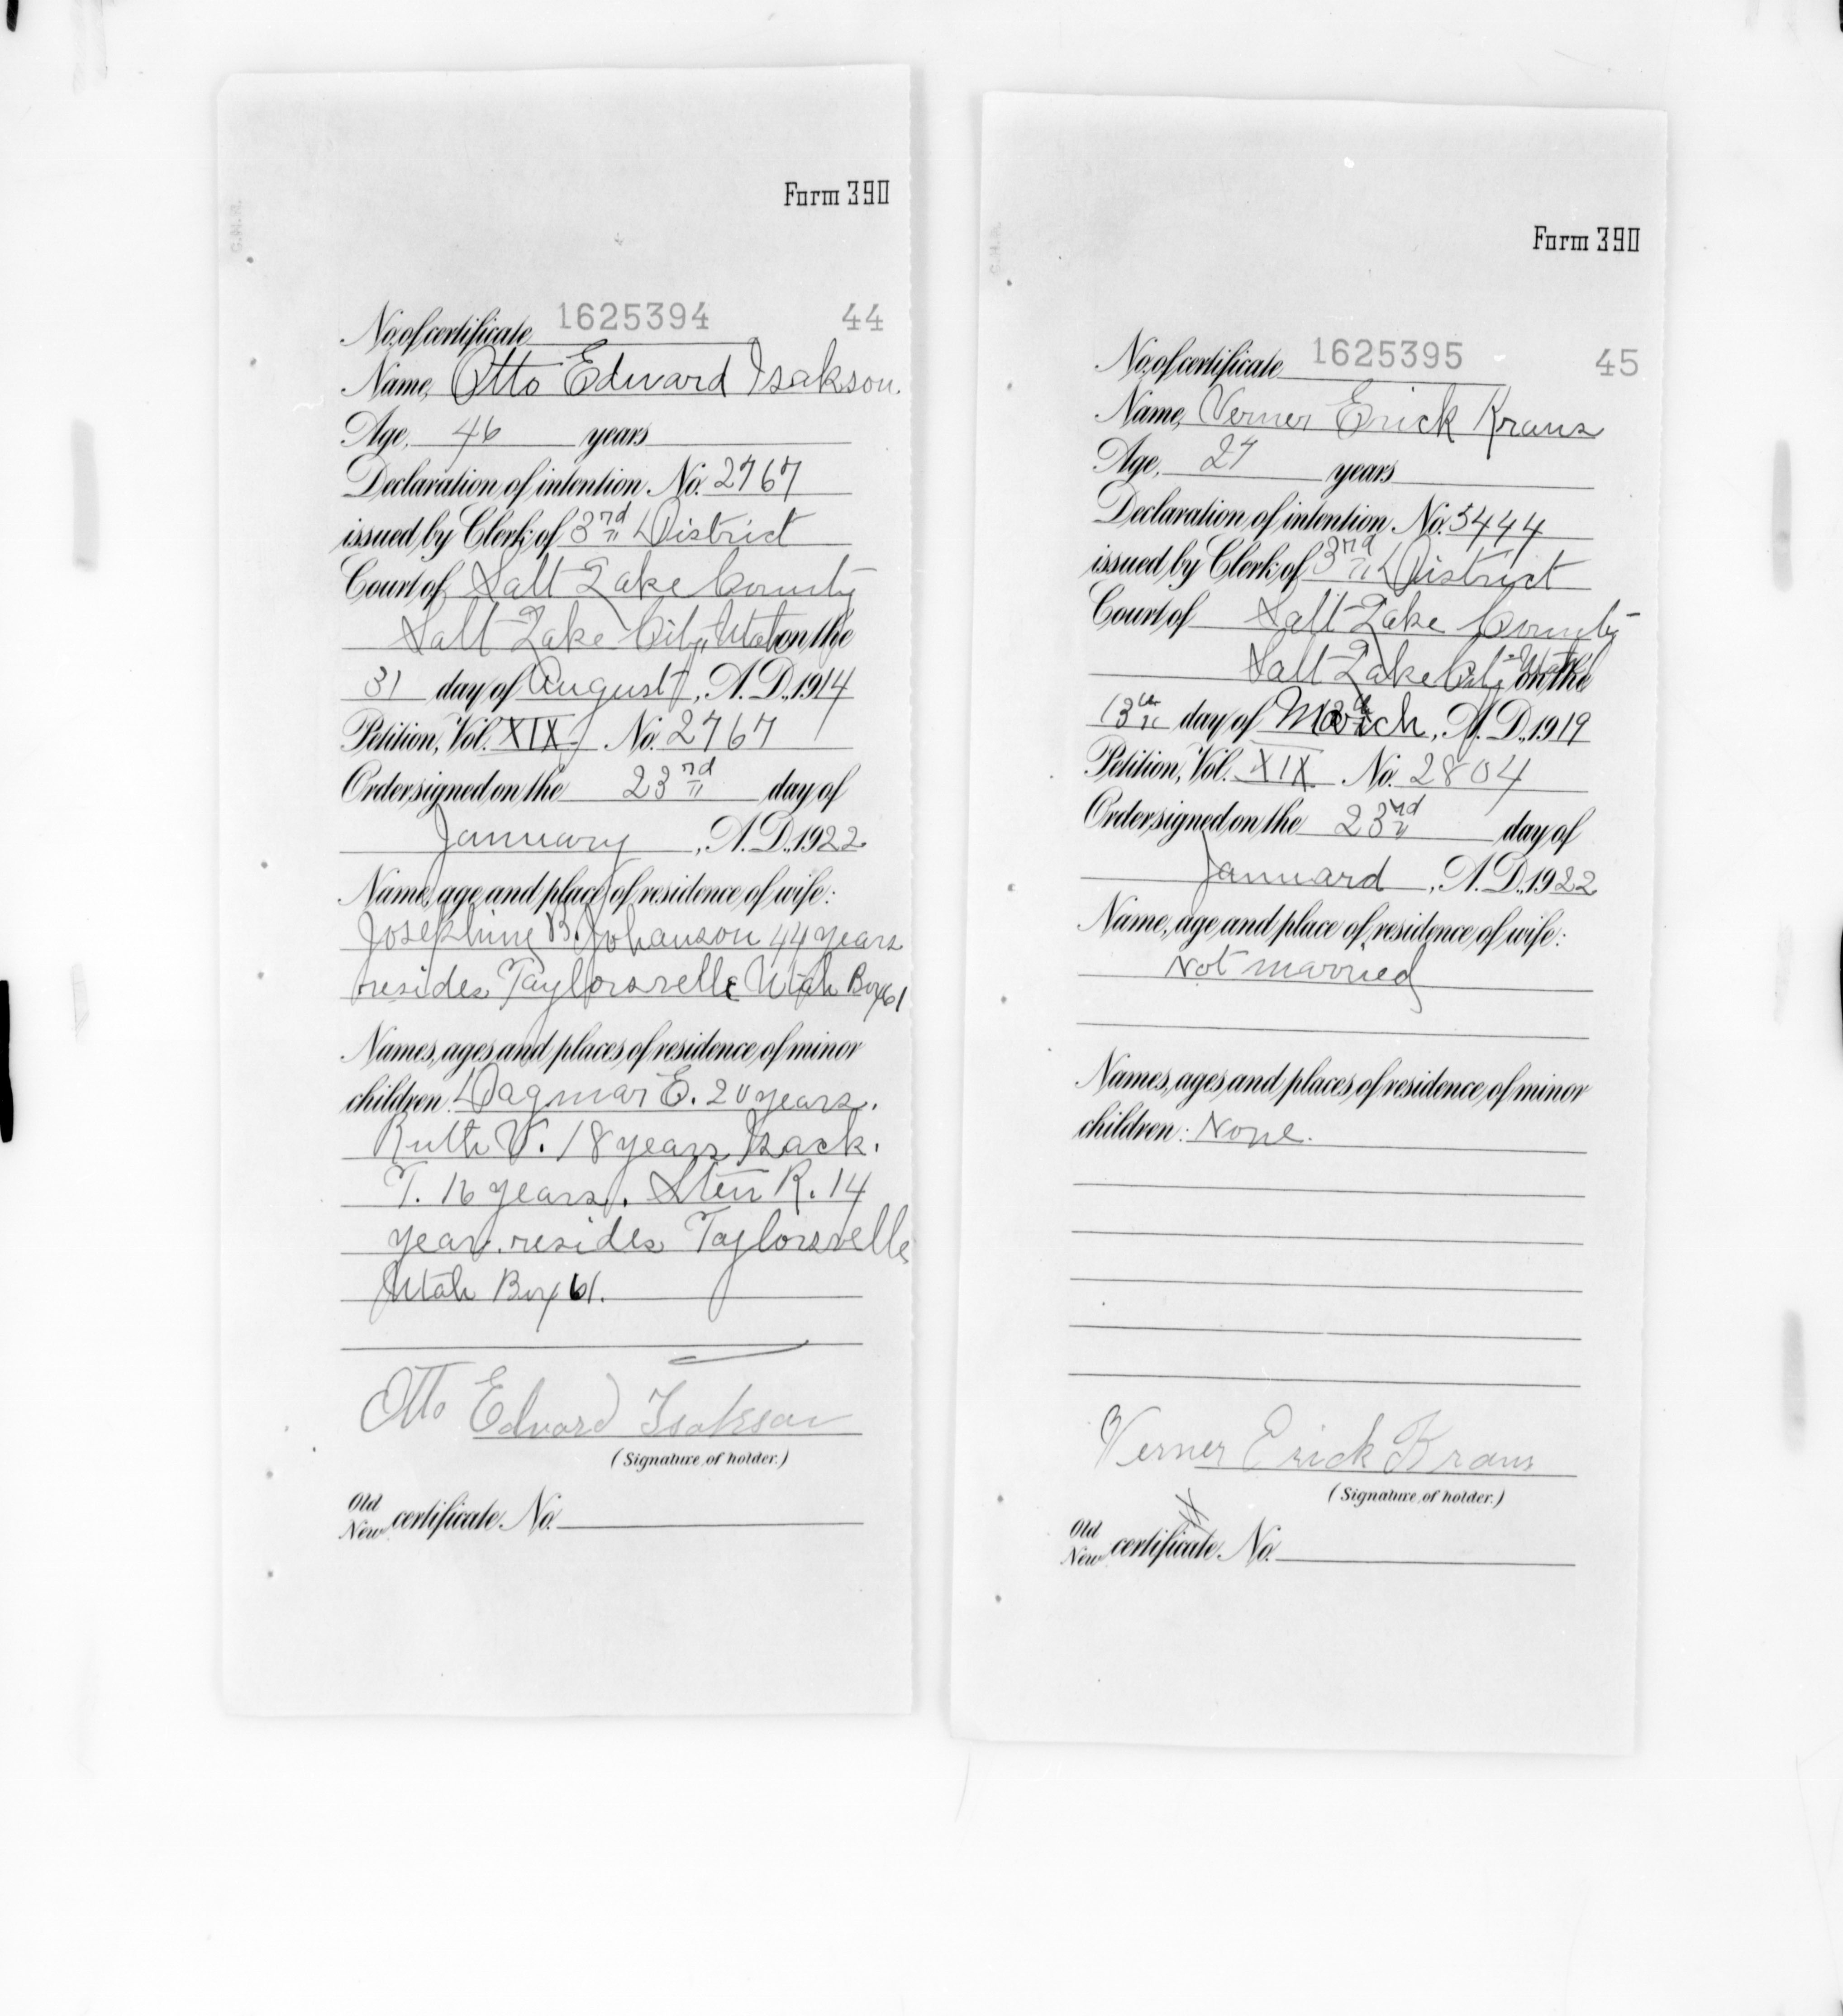 Form 390
No. of certificate 1625394 44
Name, Otto Edward Isakson.
Age, 46 years
Declaration of intention No. 2767
issued by Clerk of 3rd District
Court of Salt Lake County
Salt Lake City, Utah on the
31 day of August, A.D., 1914
Petition, Vol. XIX No. 2767
Order signed on the 23rd day of
January, A.D., 1922
Name, age and place of residence of wife:
Josephine B. Johanson 44 years
resides Taylorsvelle Utah Box 61
Names, ages and places of residence of minor
children: Dagmar E. 20 years.
Ruth V. 18 years Isack.
T. 16 years. Sten R. 14
year. resides Taylorsvelle
Utah Box 61.
Otto Edward Isakson
(Signature of holder.)
Old
New certificate No.
Form 390
No. of certificate 1625395 45
Name, Verner Erick Krans
Age, 27 years
Declaration of intention No. 5444
issued by Clerk of 3rd District
Court of Salt Lake County
Salt Lake City Utah on the
13th day of March, A.D., 1919
Petition, Vol. XIX No. 2804
Order signed on the 23rd day of
Januard, A.D., 1922
Name, age and place of residence of wife:
Not married
Names, ages and places of residence of minor
children: None.
Verner Erick Krans
(Signature of holder.)
Old
New certificate No.